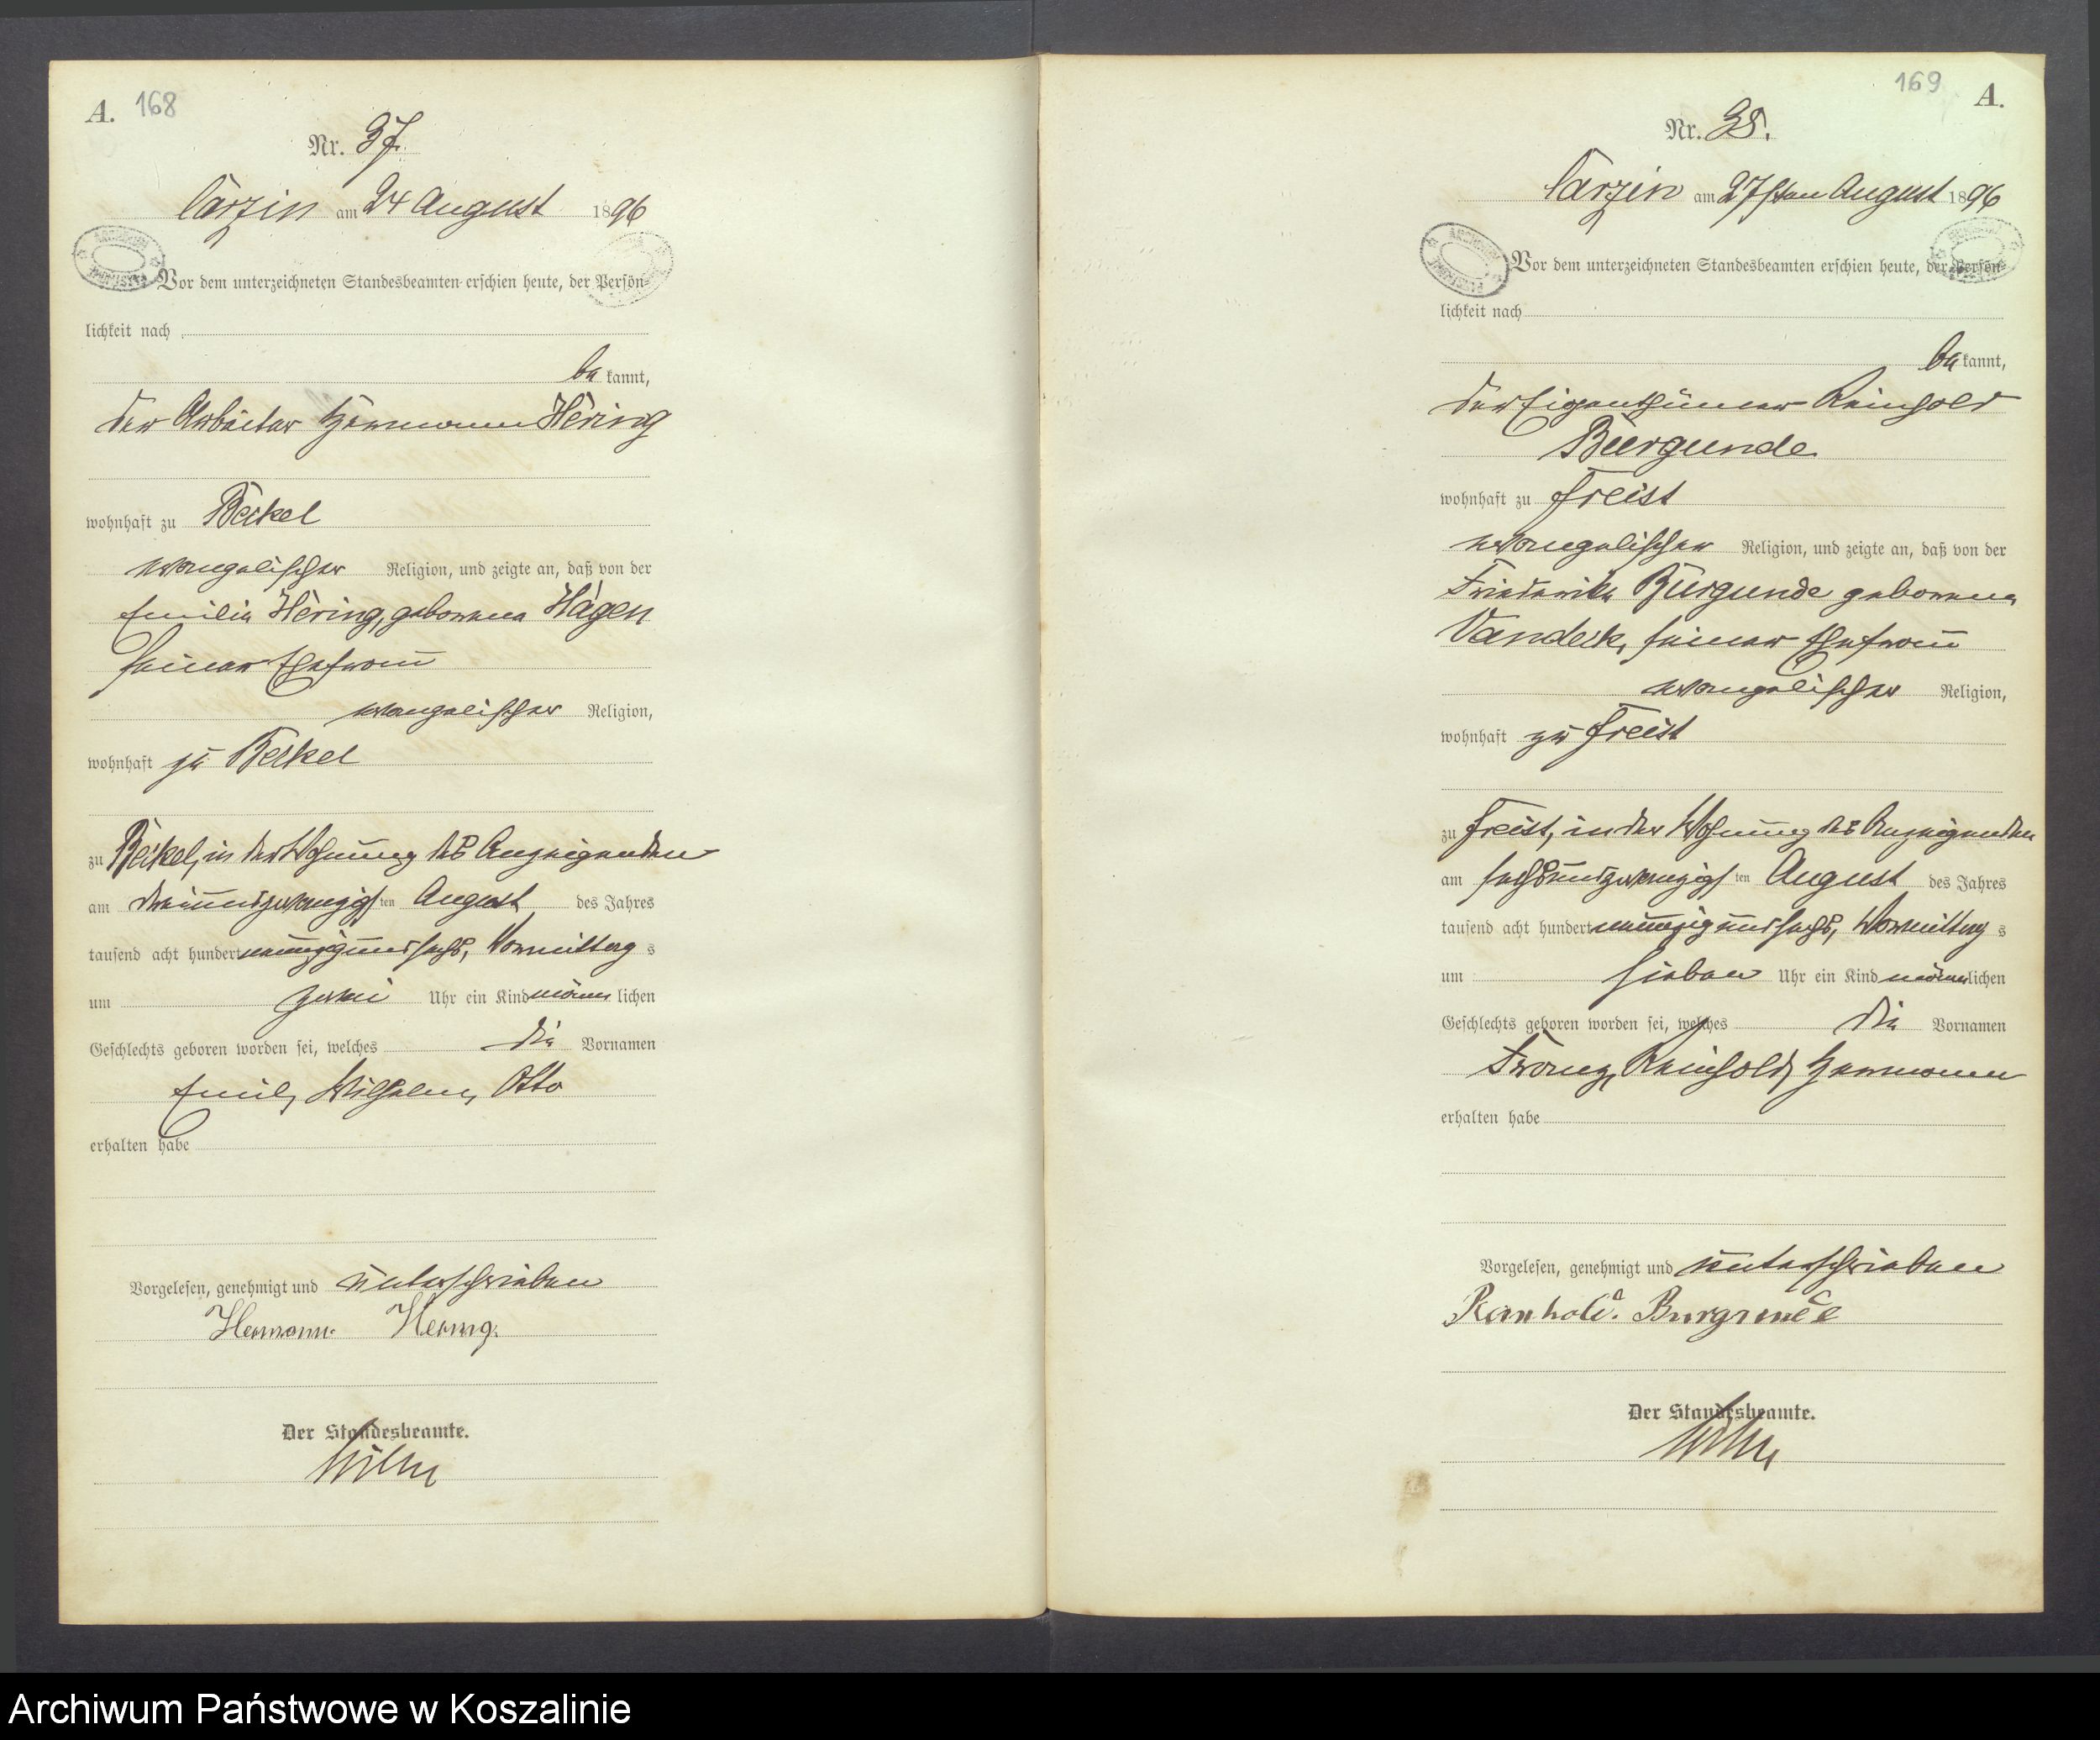 A. 168
Nr. 37.
Carzin am 24 August 1896
Vor dem unterzeichneten Standesbeamten erschien heute, der Persön-
lichkeit nach
be kannt,
der Arbeiter Hermann Hering
wohnhaft zu Beckel
evangelischer Religion, und zeigte an, daß von der
Emilie Hering, geborene Hagen
seiner Ehefrau
evangelischer Religion,
wohnhaft zu Beckel
zu Beckel, in der Wohnung des Anzeigenden
am dreiundzwanzigsten August des Jahres
tausend acht hundert neunzig und sechs, Vormittag s
um zwei Uhr ein Kind männ lichen
Geschlechts geboren worden sei, welches die Vornamen
Emil, Wilhelm, Otto
erhalten habe
Vorgelesen, genehmigt und unterschrieben
Hermann Hering.
Der Standesbeamte.
169 A.
Nr. 38.
Carzin am 27sten August 1896
Vor dem unterzeichneten Standesbeamten erschien heute, der Persön-
lichkeit nach
be kannt,
der Eigenthümer Reinhold
Burgunde
wohnhaft zu Freist
evangelischer Religion, und zeigte an, daß von der
Friederike Burgunde geborene
Vandeck, seiner Ehefrau
evangelischer Religion,
wohnhaft zu Freist
zu Freist, in der Wohnung des Anzeigenden
am sechsundzwanzigsten August des Jahres
tausend acht hundert neunzig und sechs, Vormittag s
um sieben Uhr ein Kind männlichen
Geschlechts geboren worden sei, welches die Vornamen
Franz, Reinhold, Hermann
erhalten habe
Vorgelesen, genehmigt und unterschrieben
Reinhold. Burgunde
Der Standesbeamte.
Archiwum Państwowe w Koszalinie